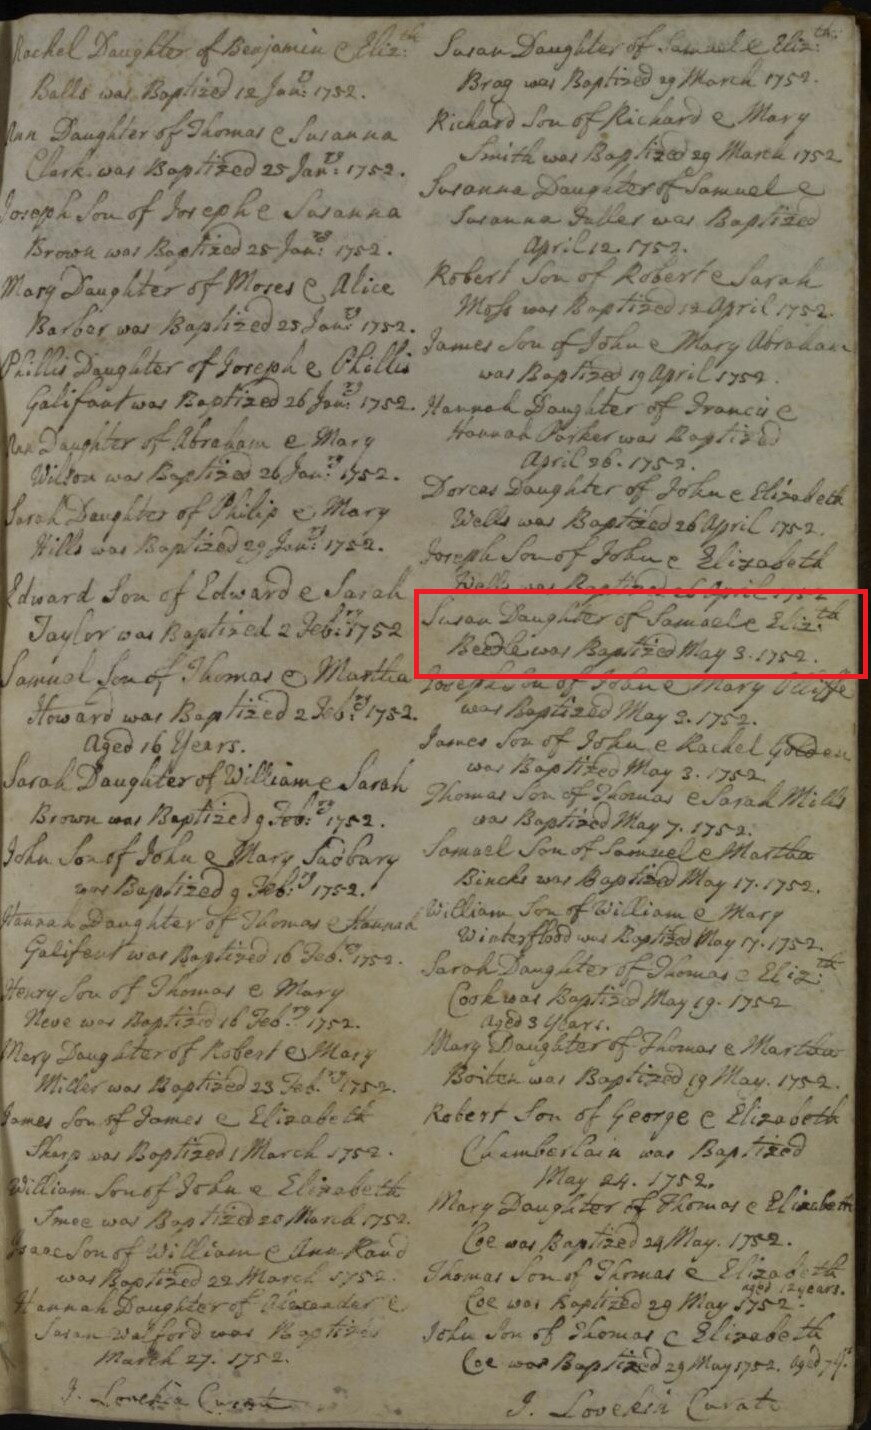 Rachel Daughter of Benjamin & Eliz:th
Balls was Baptized 12 Jan:ry 1752.
Ann Daughter of Thomas & Susanna
Clark was Baptized 25 Jan:ry 1752.
Joseph Son of Joseph & Susanna
Brown was Baptized 25 Jan:ry 1752.
Mary Daughter of Moses & Alice
Barber was Baptized 25 Jan:ry 1752.
Phillis Daughter of Joseph & Phillis
Galifant was Baptized 26 Jan:ry 1752.
Ann Daughter of Abraham & Mary
Wilson was Baptized 26 Jan:ry 1752.
Sarah Daughter of Philip & Mary
Hills was Baptized 29 Jan:ry 1752.
Edward Son of Edward & Sarah
Taylor was Baptized 2 Feb:ry 1752
Samuel Son of Thomas & Martha
Howard was Baptized 2 Feb:ry 1752.
Aged 16 Years.
Sarah Daughter of William & Sarah
Brown was Baptized 9 Feb:ry 1752.
John Son of John & Mary Sadbury
was Baptized 9 Feb:ry 1752.
Hannah Daughter of Thomas & Hannah
Galifent was Baptized 16 Feb:ry 1752.
Henry Son of Thomas & Mary
Neve was Baptized 16 Feb:ry 1752.
Mary Daughter of Robert & Mary
Miller was Baptized 23 Feb:ry 1752.
James Son of James & Elizabeth
Sharp was Baptized 1 March 1752.
William Son of John & Elizabeth
Smee was Baptized 20 March 1752.
Isaac Son of William & Ann Rand
was Baptized 22 March 1752.
Hannah Daughter of Alexander &
Susan Walford was Baptized
March 27. 1752.
J. Lovekin Curate
Susan Daughter of Samuel & Eliz:th
Brag was Baptized 29 March 1752.
Richard Son of Richard & Mary
Smith was Baptized 29 March 1752
Susanna Daughter of Samuel &
Susanna Fuller was Baptized
April 12. 1752.
Robert Son of Robert & Sarah
Moss was Baptized 12 April 1752.
James Son of John & Mary Abraham
was Baptized 19 April 1752.
Hannah Daughter of Francis &
Hannah Parker was Baptized
April 26. 1752.
Dorcas Daughter of John & Elizabeth
Wells was Baptized 26 April 1752.
Joseph Son of John & Elizabeth
Wells was Baptized 26 April 1752
Susan Daughter of Samuel & Eliz:th
Beedle was Baptized May 3. 1752.
Joseph Son of John & Mary
was Baptized May 3. 1752.
James Son of John & Rachel Golden
was Baptized May 3. 1752.
Thomas Son of Thomas & Sarah Mills
was Baptized May 7. 1752.
Samuel Son of Samuel & Martha
Bincks was Baptized May 17. 1752.
William Son of William & Mary
Winterflood was Baptized May 17. 1752.
Sarah Daughter of Thomas & Eliz:th
Cook was Baptized May 19. 1752
aged 3 Years.
Mary Daughter of Thomas & Martha
Boiten was Baptized 19 May. 1752.
Robert Son of George & Elizabeth
Chamberlain was Baptized
May 24. 1752.
Mary Daughter of Thomas & Elizabeth
Coe was Baptized 24 May. 1752.
Thomas Son of Thomas & Elizabeth
aged 12 years.
Coe was Baptized 29 May 1752.
John Son of Thomas & Elizabeth
Coe was Baptized 29 May 1752. aged 7
J. Lovekin Curate